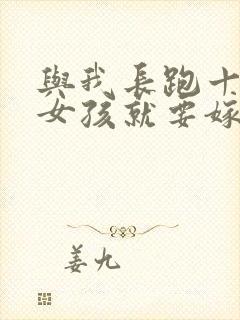 與我長跑十
女孩就要嫁
姜九